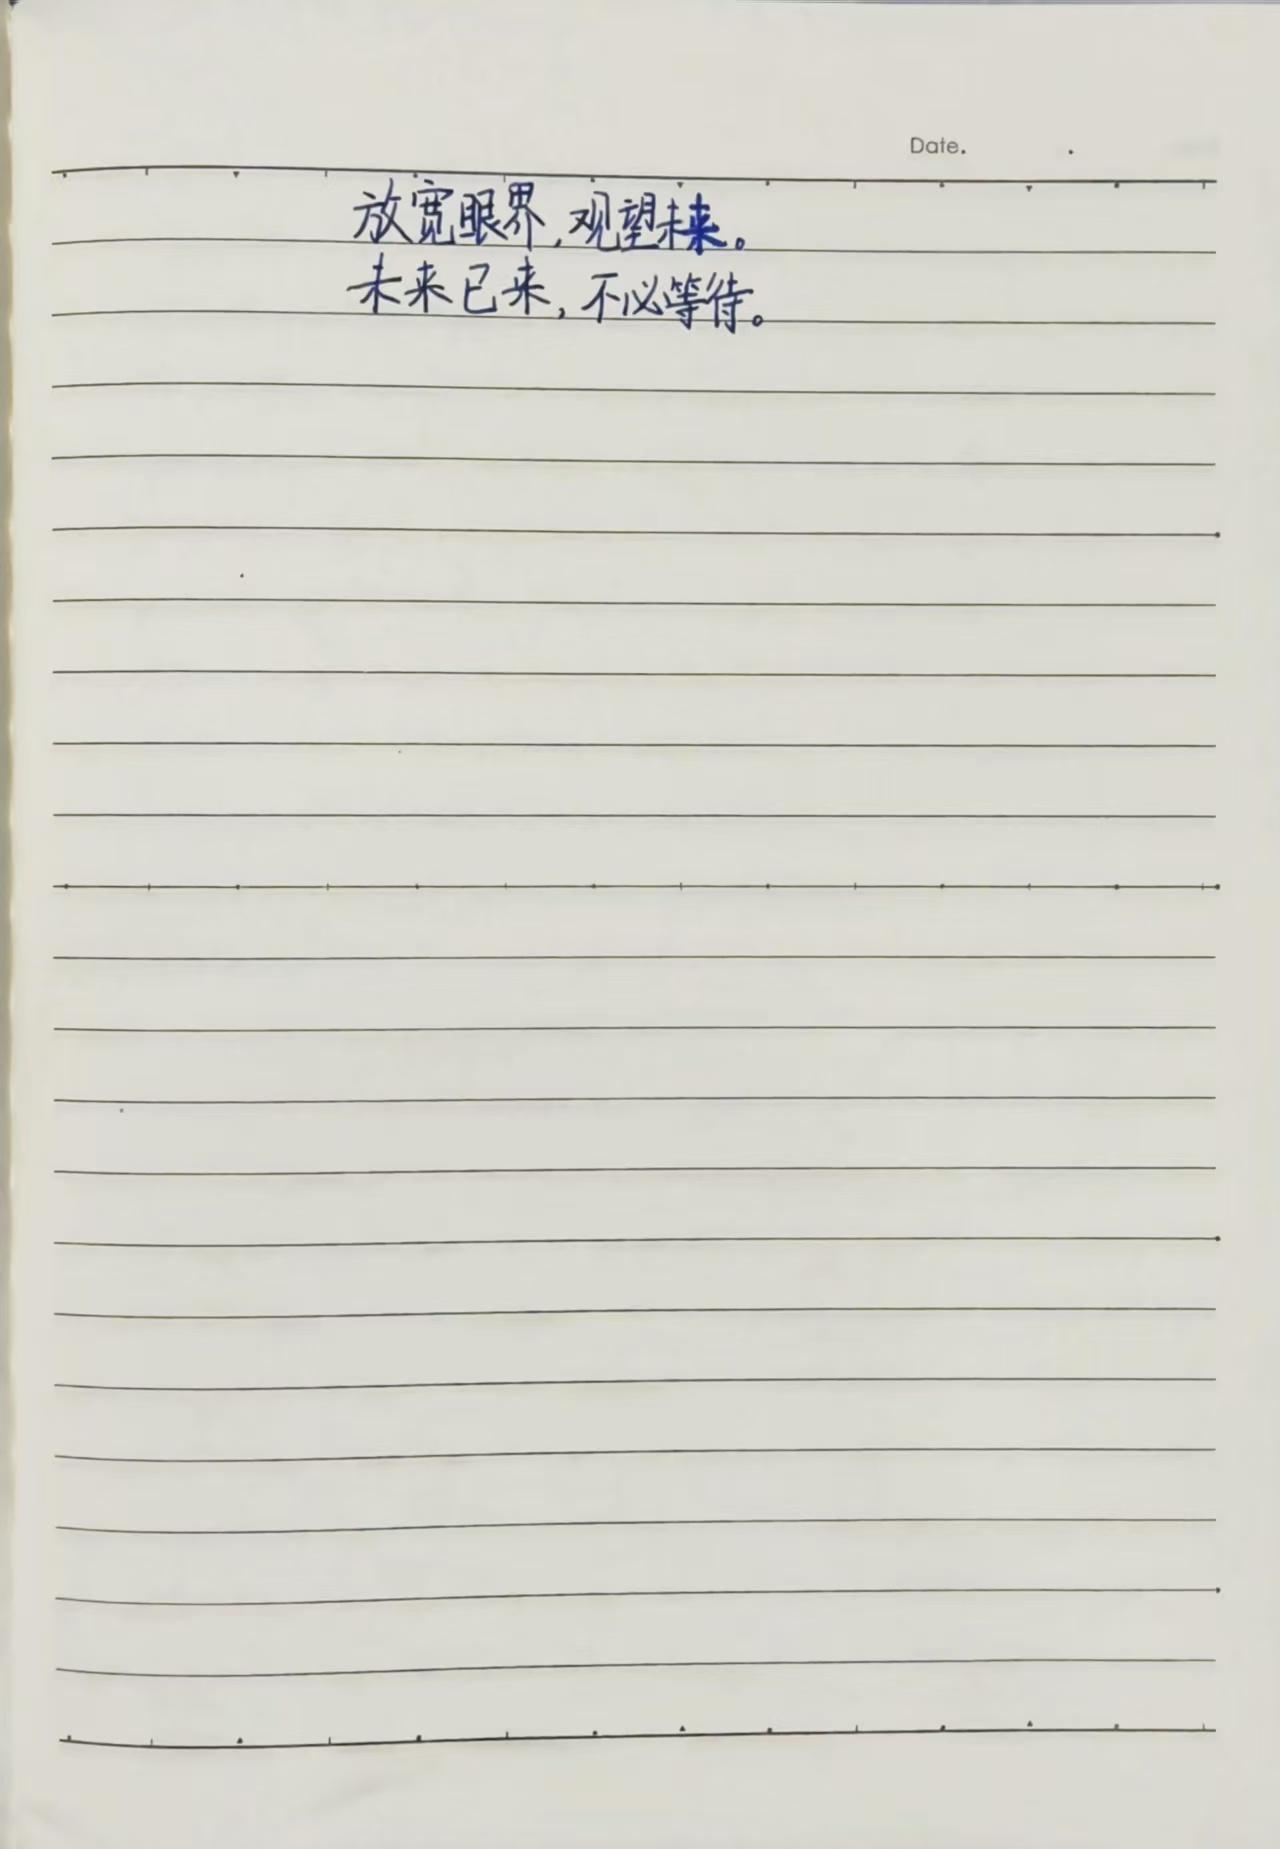 Date.
放宽眼界，观望未来。
未来已来，不必等待。